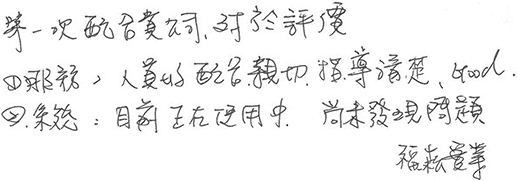 第一次配合貴公司,對於評價
①服務:人員的配合親切.指導清楚、Good.
②.系統:目前正在使用中.尚未發現問題
福耘實業